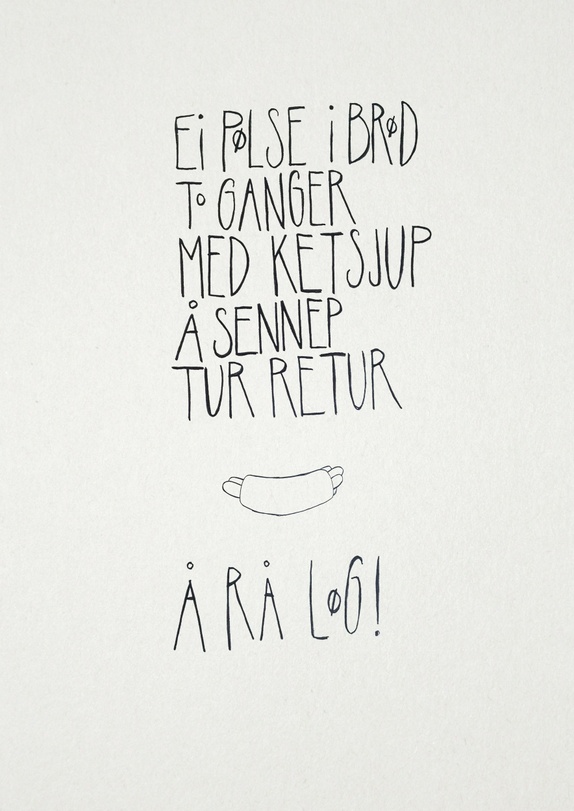 Ei PØLSE i BRØD
To GANGER
MED KETSJUP
Å SENNEP
TUR RETUR
Å RÅ LØG!